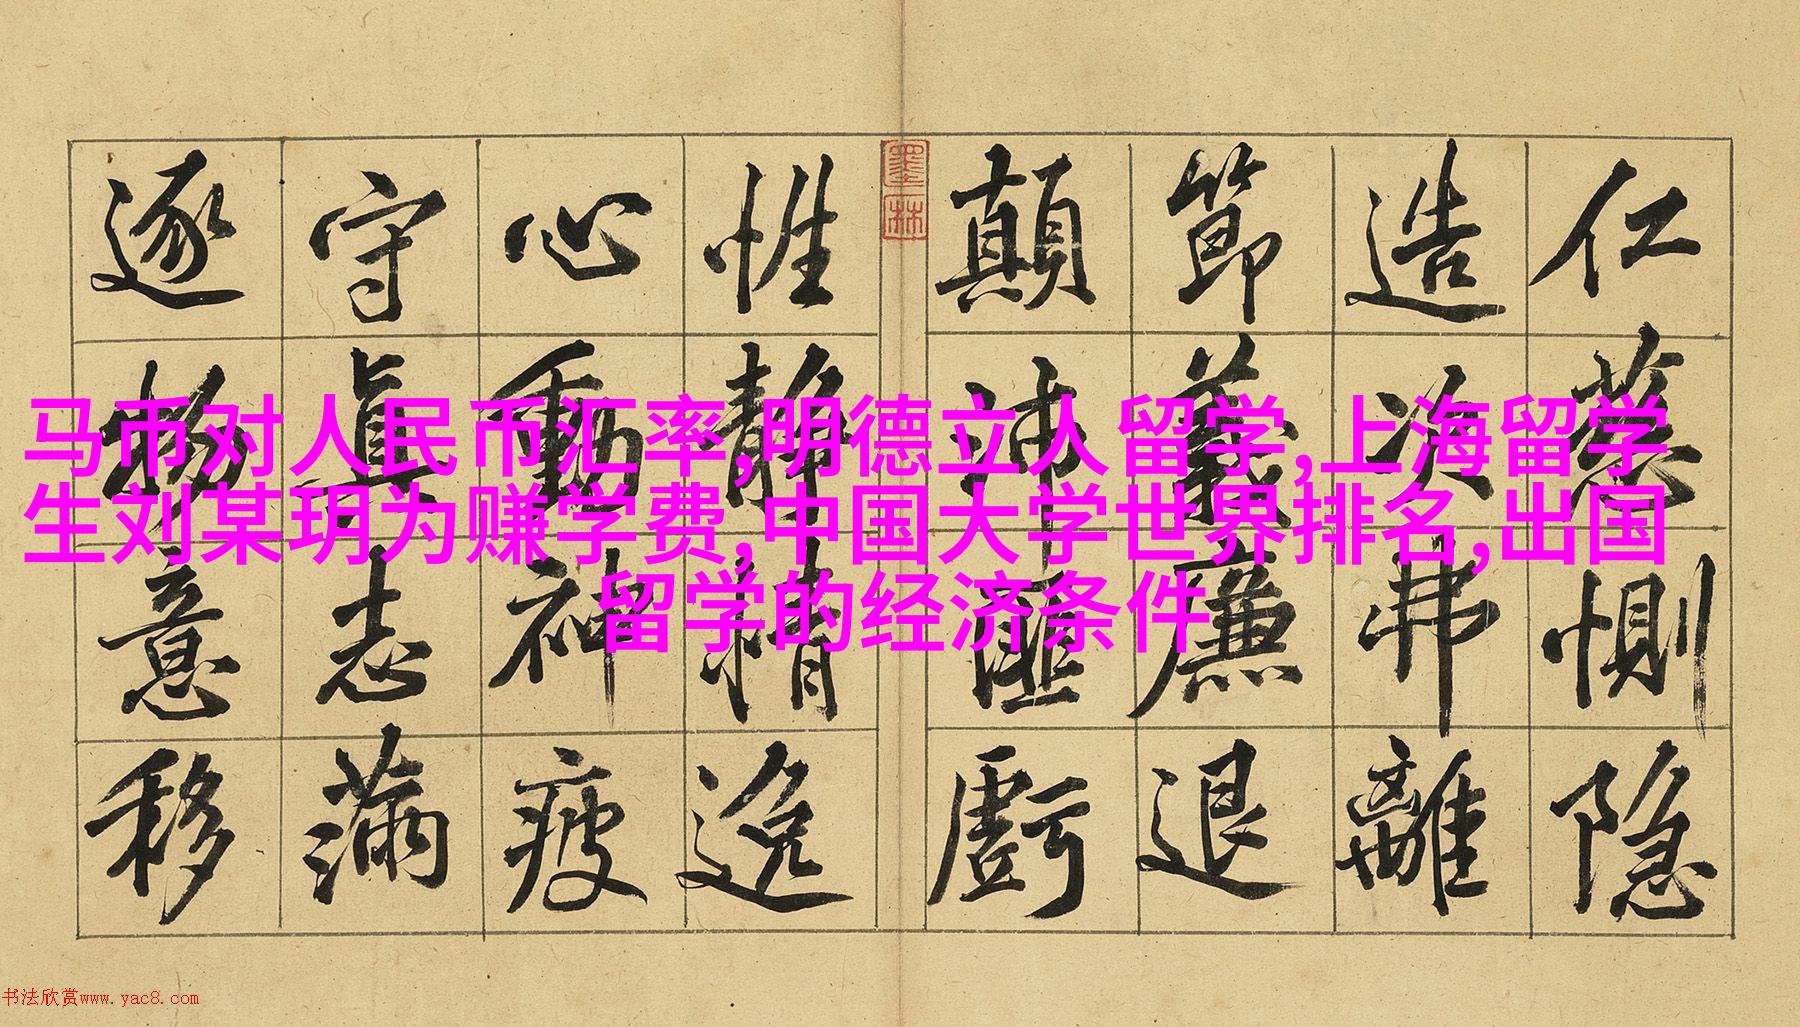 仁慈惻隐
造次弗離
節義廉退
顛沛匪虧
墨林
性靜情逸
心動神疲
守眞志滿
逐物意移
马币对人民币汇率,明德立人留学,上海留学
生刘某玥为赚学费,中国大学世界排名,出国
留学的经济条件
书法欣赏www.yac8.com